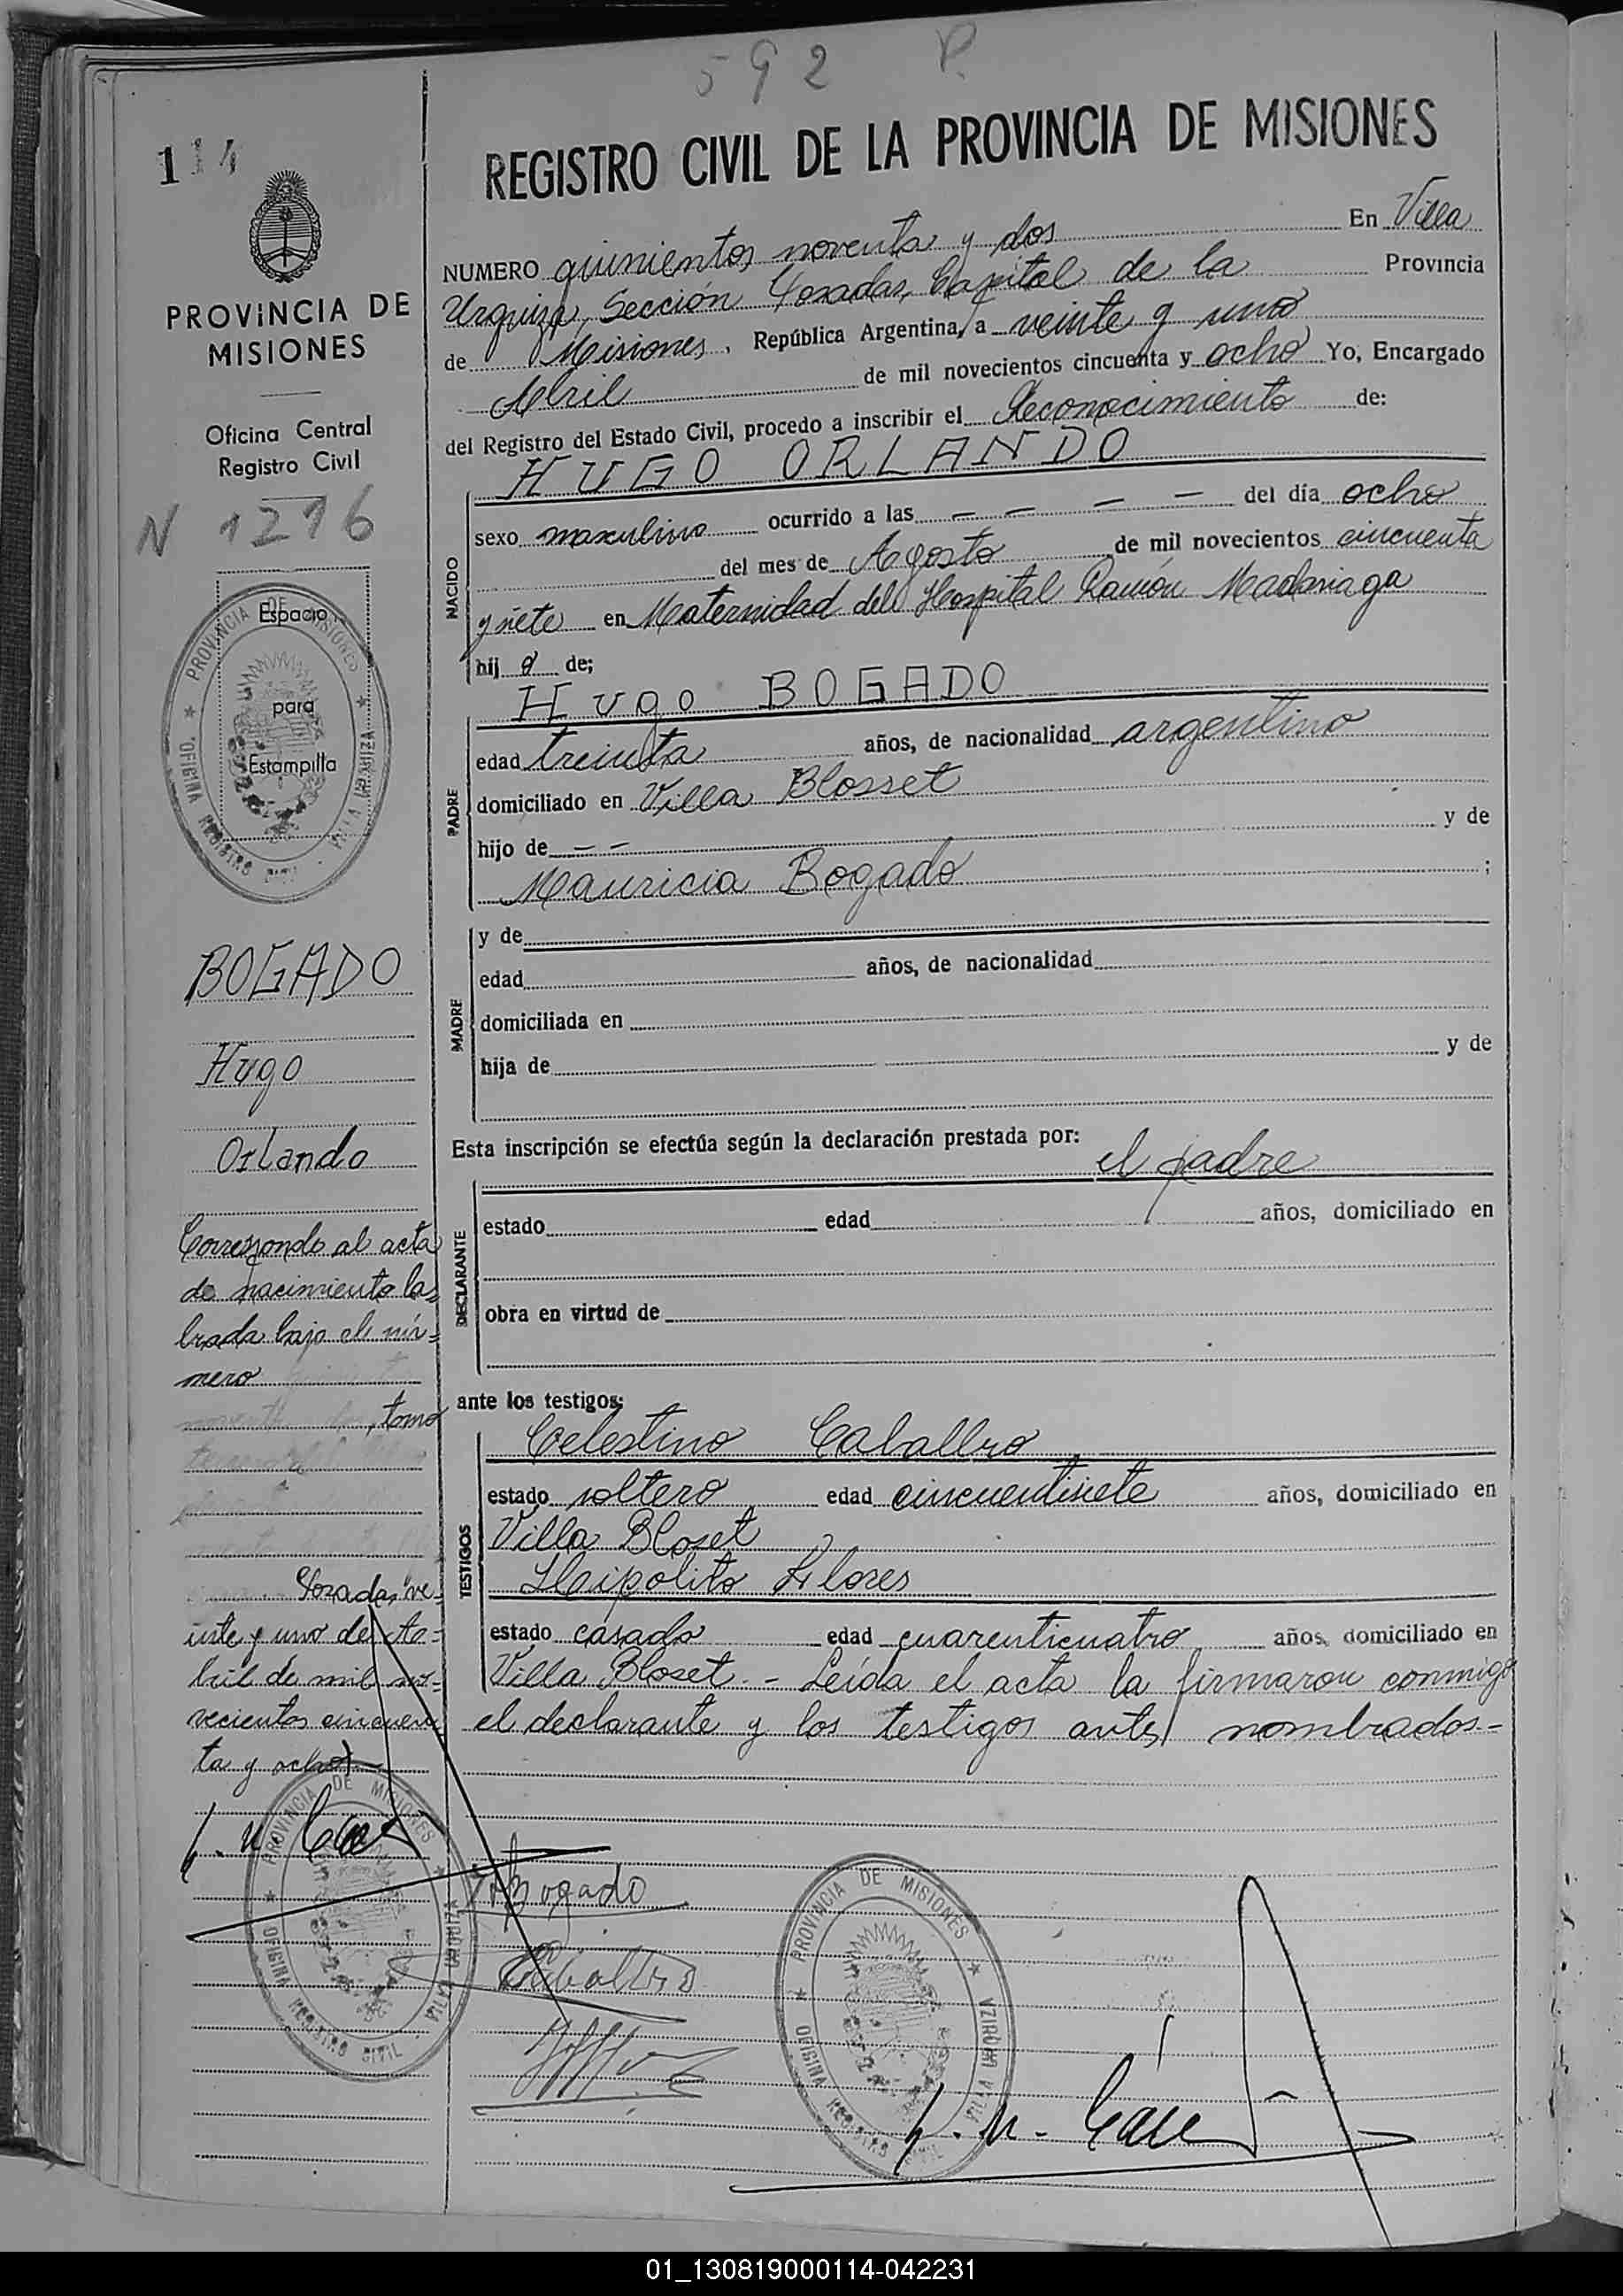 592 P.
114
REGISTRO CIVIL DE LA PROVINCIA DE MISIONES
PROVINCIA DE
MISIONES
Oficina Central
Registro Civil
N 1276
Espacio
para
Estampilla
PROVINCIA DE MISIONES
OFICINA REGISTRO CIVIL
VILLA URQUIZA
BOGADO
Hugo
Orlando
Corresponde al acta
de nacimiento la=
brada bajo el nú=
mero
, tomo
Posadas ve=
inte y uno de A=
bril de mil no=
vecientos cincuen
ta y ocho)
NUMERO quinientos noventa y dos En Villa
Urquiza, Sección Posadas, Capital de la Provincia
de Misiones, República Argentina, a veinte y uno
Abril de mil novecientos cincuenta y ocho Yo, Encargado
del Registro del Estado Civil, procedo a inscribir el Reconocimiento de:
HUGO ORLANDO
NACIDO
sexo masculino ocurrido a las — — — — del día ocho
del mes de Agosto de mil novecientos cincuenta
y siete en Maternidad del Hospital Ramón Madariaga
hij o de;
Hugo BOGADO
PADRE
edad treinta años, de nacionalidad argentino
domiciliado en Villa Blosset
hijo de — — y de
Mauricia Bogado ;
MADRE
y de
edad años, de nacionalidad
domiciliada en
hija de y de
Esta inscripción se efectúa según la declaración prestada por:
el padre
DECLARANTE
estado edad años, domiciliado en
obra en virtud de
ante los testigos:
TESTIGOS
Celestino Caballero
estado soltero edad cincuentisiete años, domiciliado en
Villa Bloset
Hipolito Flores
estado casado edad cuarenticuatro años, domiciliado en
Villa Bloset. - Leída el acta la firmaron conmigo
el declarante y los testigos antes nombrados-
Bogado
Caballero
PROVINCIA DE MISIONES
OFICINA REGISTRO CIVIL
VILLA URQUIZA
PROVINCIA DE MISIONES
OFICINA REGISTRO CIVIL
VILLA URQUIZA
01_130819000114-042231